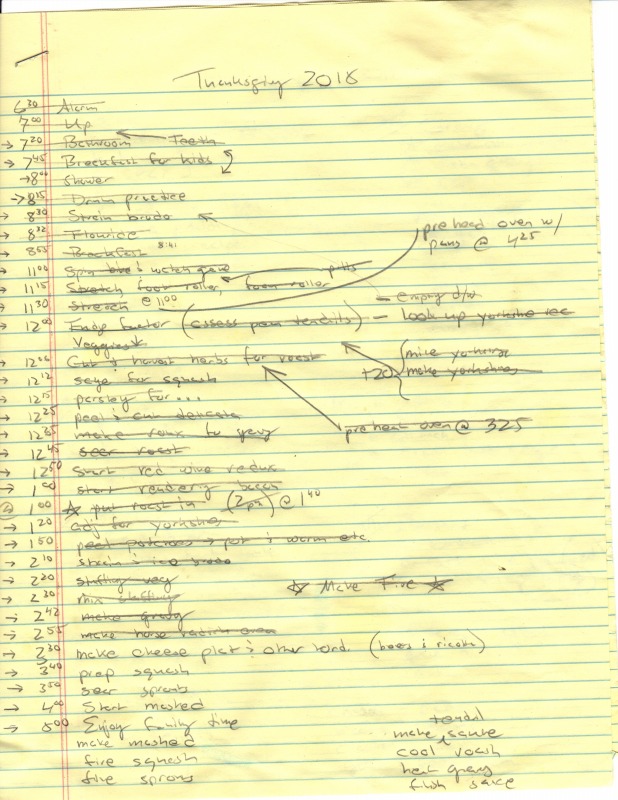 Thanksgiving 2018
6:30 Alarm
7:00 Up
→ 7:20 Bathroom Teeth
→ 7:45 Breakfast for kids
→ 8:00 Shower
→ 8:15 practice
→ 8:30 Strain brodo
→ 8:32 Flouride
→ 8:55 Breakfast 8:41
preheat oven w/
pans @ 425
→ 11:00 Spin bike & watch game
→ 11:15 Stretch foot roller, foam roller
→ 11:30 Stretch @ 11:00
- empty d/w
→ 12:00 Fudge factor (assess pan tendits) - Look up yorkshire rec
Veggies
→ 12:06 Cut & harvest herbs for roast
→ 12:12 sage for squash
+20 { make yorkshires
→ 12:15 parsley for...
→ 12:25 peel & cut
→ 12:35 make roux for gravy
preheat oven @ 325
→ 12:45 sear roast
→ 12:50 Start red wine redux
→ 1:00 start rendering bacon
1:00 ☆ put roast in (2pm) @ 1:40
→ 1:20 adj for yorkshires
→ 1:50 peel potatoes → pot & warm etc.
→ 2:10 strain & ice brodo
→ 2:20 stuffing veg
→ 2:30 mix stuffing
☆ Make Fire ☆
→ 2:42 make gravy
→ 2:55 make horse radish
→ 2:30 make cheese plate & other (bees & ricotta)
→ 3:40 prep squash
→ 3:50 sear sprouts
→ 4:00 Start mashed
→ 5:00 Enjoy family time
make mashed
fire squash
fire sprouts
make sauce
cool roast
heat gravy
finish sauce